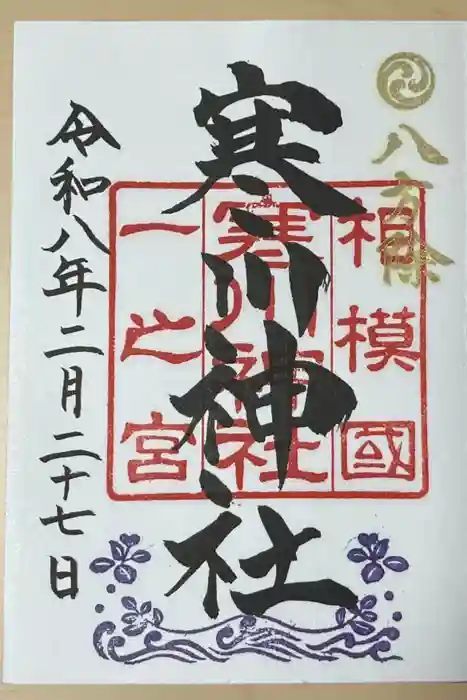 八方除
寒川神社
相模國
寒川神社
一之宮
令和八年二月二十七日